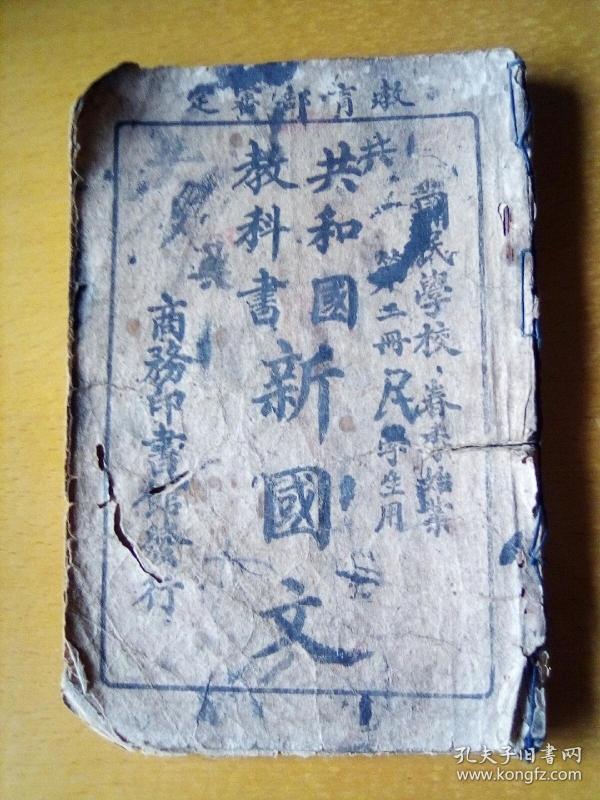 教育部審定
國民學校・春季始業
共・二 第二冊 民 學生用
共和國
教科書
新國文
商務印書館發行
孔夫子旧書网
www.kongfz.com